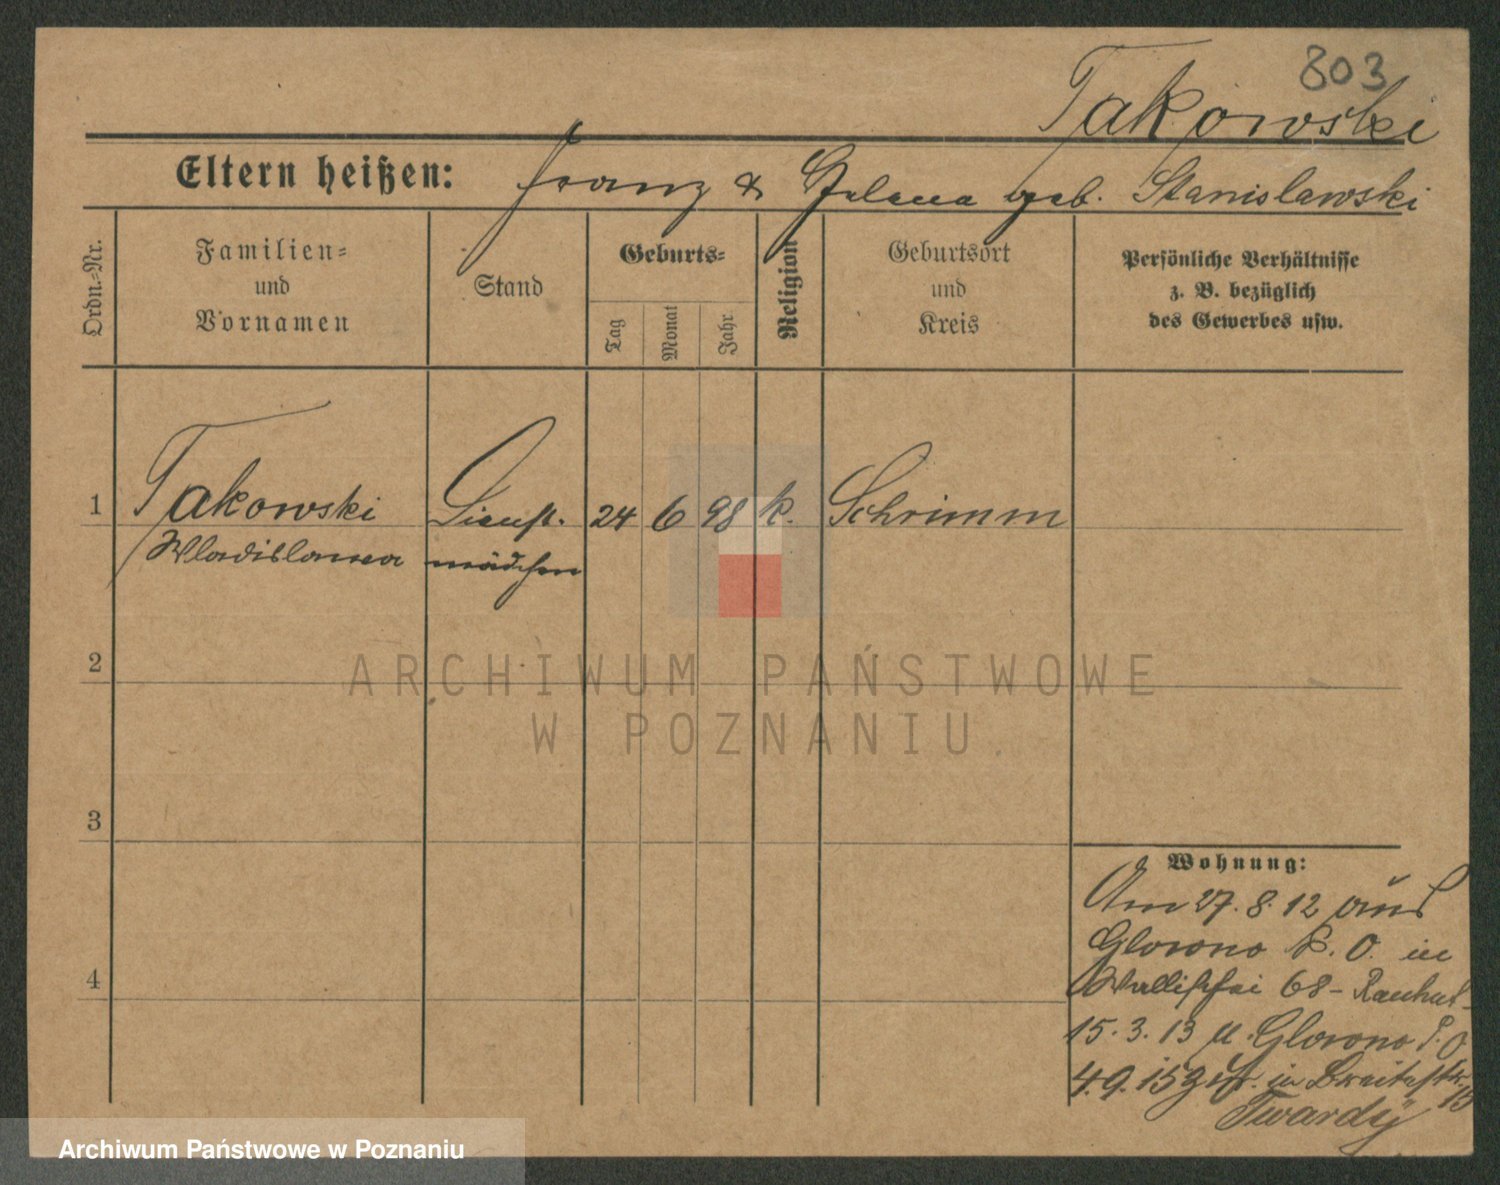 803
Takowski
Eltern heißen: Franz & Helena geb. Stanislawski
Ordn.-Nr.
Familien-
und
Vornamen
Stand
Geburts-
Tag
Monat
Jahr
Religion
Geburtsort
und
Kreis
Persönliche Verhältnisse
z. B. bezüglich
des Gewerbes usw.
1 Takowski Dienst. 24 6 98 k. Schrimm
Wladislawa mädchen
2
3
4
Wohnung:
Am 27. 8. 12 aus
Glowno P. O. in
Wallischei 68 - Rauhut
15. 3. 13 n. Glowno P. O
4. 9. 15 in Breitestr. 15
Twardy
ARCHIWUM PAŃSTWOWE
W POZNANIU.
Archiwum Państwowe w Poznaniu